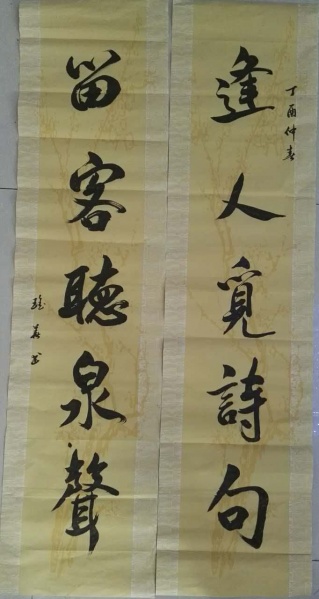 丁酉仲春
逢人覓詩句
留客聽泉聲